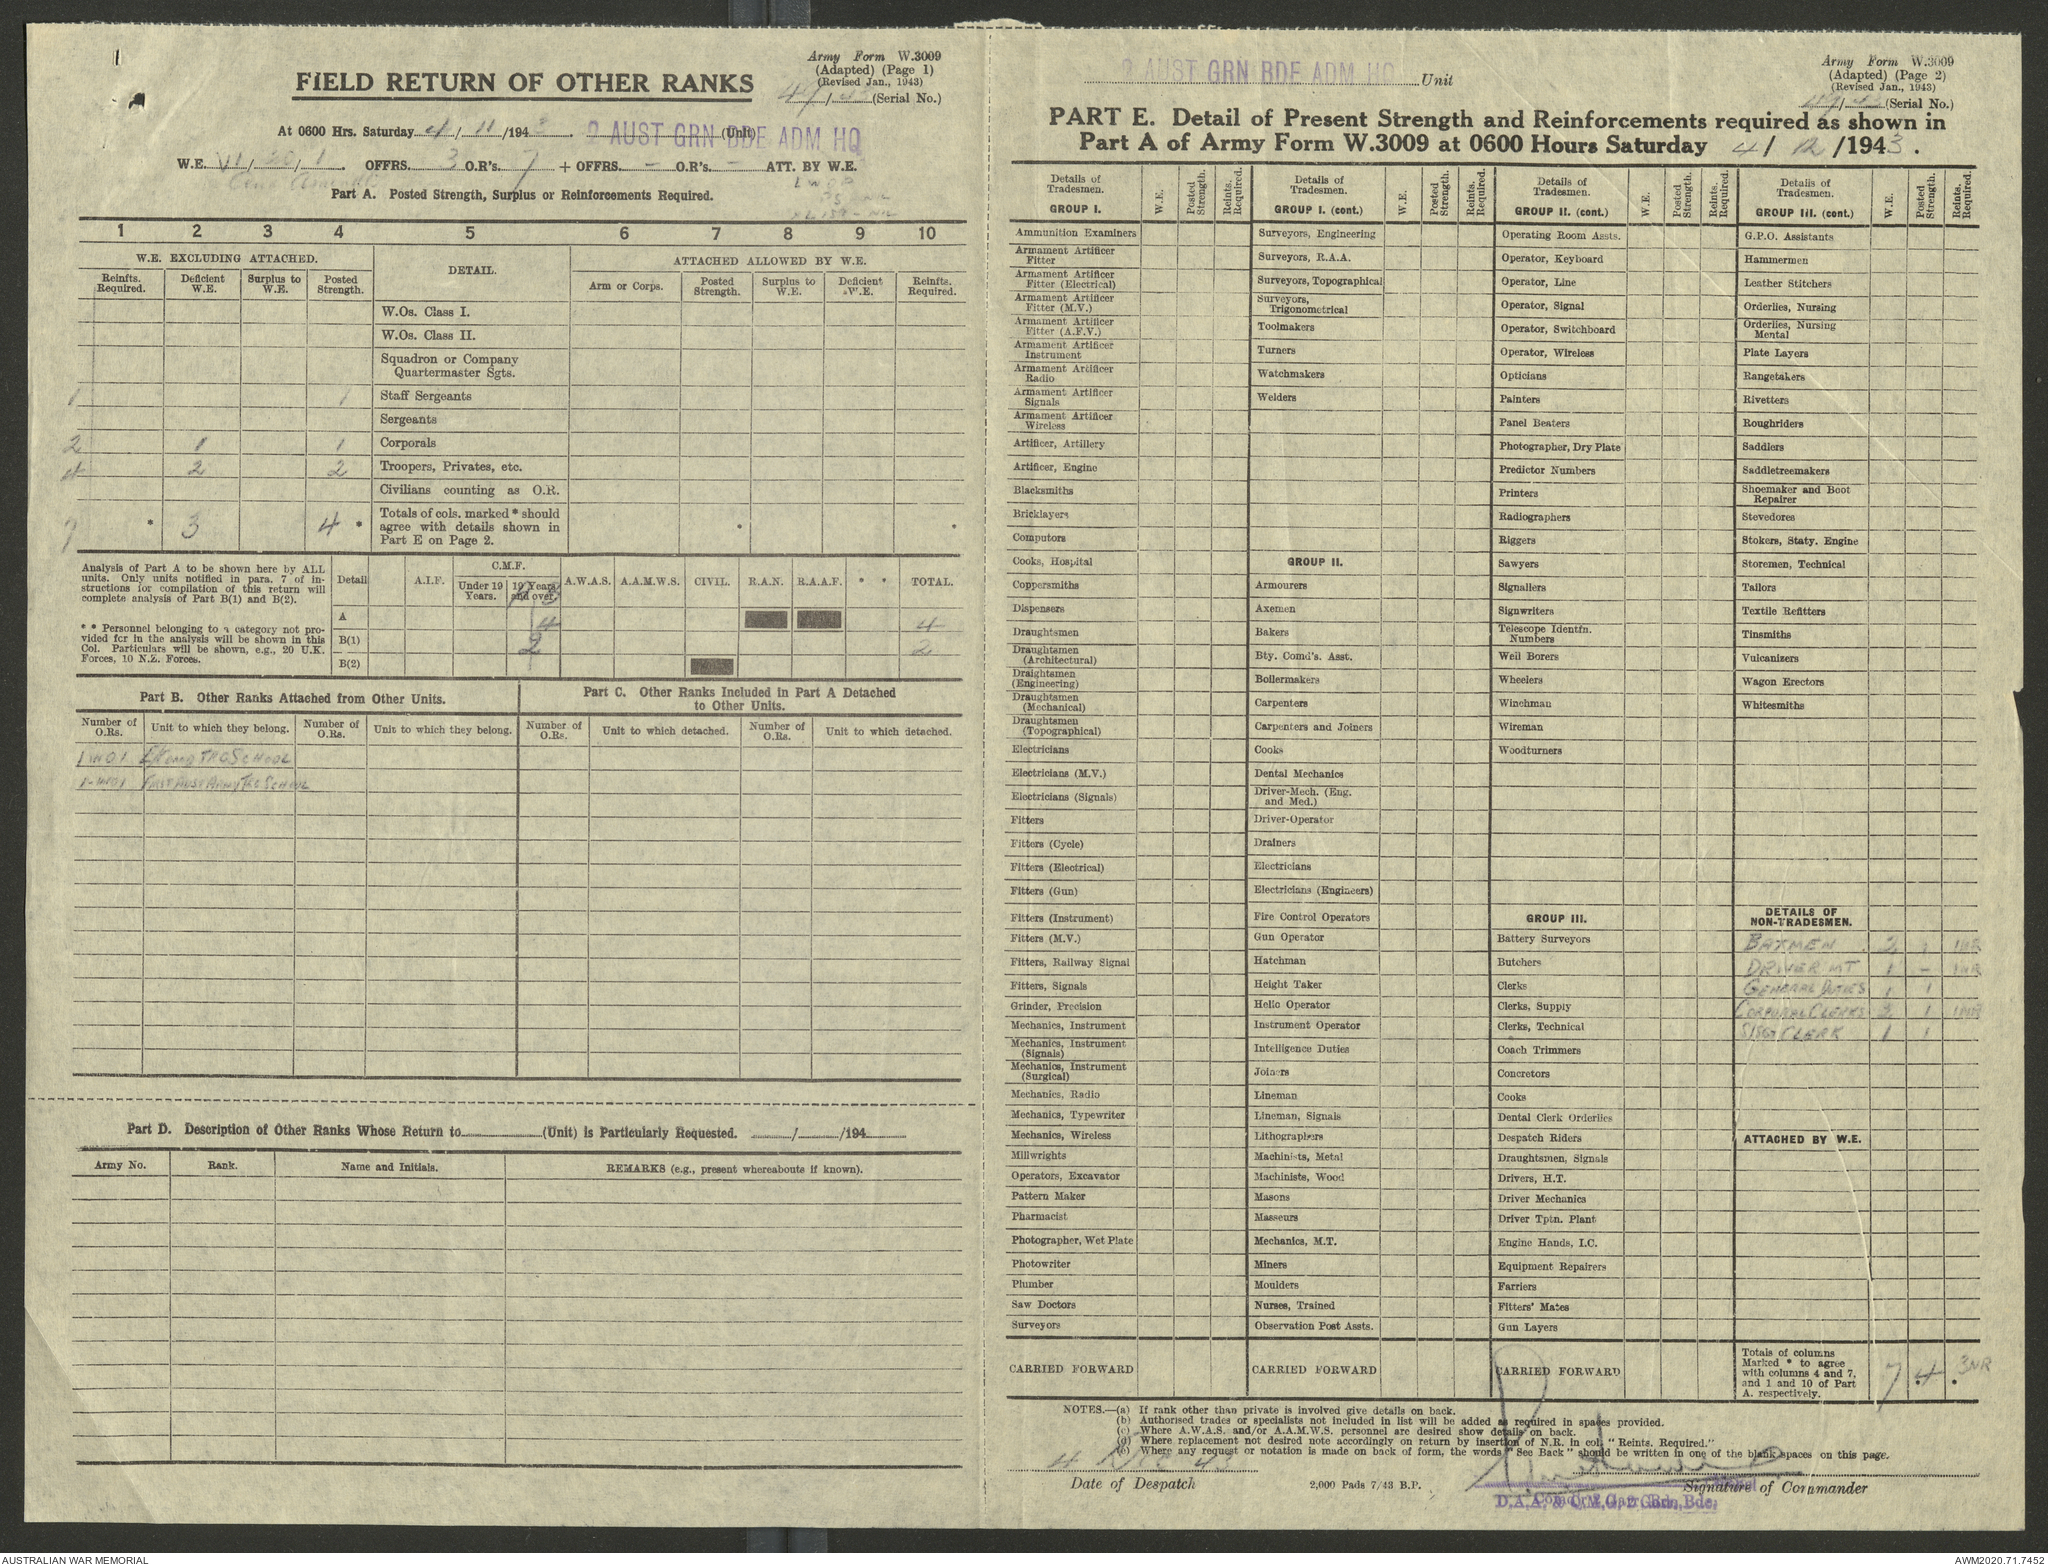 Army Form W.3009
(Adapted) (Page 1)
(Revised Jan., 1943)
49/43 (Serial No.)
FIELD RETURN OF OTHER RANKS
At 0600 Hrs. Saturday 4/11/1943. 2 AUST GRN BDE ADM HQ (Unit)
W.E. OFFRS. 3 O.R's. 7 + OFFRS. — O.R's. — ATT. BY W.E.
Part A. Posted Strength, Surplus or Reinforcements Required.
1 2 3 4 5 6 7 8 9 10
W.E. EXCLUDING ATTACHED. DETAIL. ATTACHED ALLOWED BY W.E.
Reinfts. Required. Deficient W.E. Surplus to W.E. Posted Strength. Arm or Corps. Posted Strength. Surplus to W.E. Deficient W.E. Reinfts. Required.
W.Os. Class I.
W.Os. Class II.
Squadron or Company
Quartermaster Sgts.
1 1 Staff Sergeants
Sergeants
2 1 1 Corporals
4 2 2 Troopers, Privates, etc.
Civilians counting as O.R.
7 * 3 4 * Totals of cols. marked * should
agree with details shown in
Part E on Page 2.
Analysis of Part A to be shown here by ALL
units. Only units notified in para. 7 of in-
structions for compilation of this return will
complete analysis of Part B(1) and B(2).
* * Personnel belonging to a category not pro-
vided for in the analysis will be shown in this
Col. Particulars will be shown, e.g., 20 U.K.
Forces, 10 N.Z. Forces.
Detail A.I.F. C.M.F. A.W.A.S. A.A.M.W.S. CIVIL. R.A.N. R.A.A.F. * * TOTAL.
Under 19 Years. 19 Years and over.
A 4 4
B(1) 2 2
B(2)
Part B. Other Ranks Attached from Other Units.
Part C. Other Ranks Included in Part A Detached
to Other Units.
Number of O.Rs. Unit to which they belong. Number of O.Rs. Unit to which they belong. Number of O.Rs. Unit to which detached. Number of O.Rs. Unit to which detached.
1 WO1 TRG SCHOOL
1 WO1 FIRST AUST ARMY TRG SCHOOL
Part D. Description of Other Ranks Whose Return to (Unit) is Particularly Requested. / /194
Army No. Rank. Name and Initials. REMARKS (e.g., present whereabouts if known).
Army Form W.3009
(Adapted) (Page 2)
(Revised Jan., 1943)
49/43 (Serial No.)
2 AUST GRN BDE ADM HQ Unit
PART E. Detail of Present Strength and Reinforcements required as shown in
Part A of Army Form W.3009 at 0600 Hours Saturday 4/12/1943.
Details of Tradesmen. W.E. Posted Strength. Reints. Required.
GROUP I.
Ammunition Examiners
Armament Artificer
Fitter
Armament Artificer
Fitter (Electrical)
Armament Artificer
Fitter (M.V.)
Armament Artificer
Fitter (A.F.V.)
Armament Artificer
Instrument
Armament Artificer
Radio
Armament Artificer
Signals
Armament Artificer
Wireless
Artificer, Artillery
Artificer, Engine
Blacksmiths
Bricklayers
Computors
Cooks, Hospital
Coppersmiths
Dispensers
Draughtsmen
Draughtsmen
(Architectural)
Draightsmen
(Engineering)
Draughtsmen
(Mechanical)
Draughtsmen
(Topographical)
Electricians
Electricians (M.V.)
Electricians (Signals)
Fitters
Fitters (Cycle)
Fitters (Electrical)
Fitters (Gun)
Fitters (Instrument)
Fitters (M.V.)
Fitters, Railway Signal
Fitters, Signals
Grinder, Precision
Mechanics, Instrument
Mechanics, Instrument
(Signals)
Mechanics, Instrument
(Surgical)
Mechanics, Radio
Mechanics, Typewriter
Mechanics, Wireless
Millwrights
Operators, Excavator
Pattern Maker
Pharmacist
Photographer, Wet Plate
Photowriter
Plumber
Saw Doctors
Surveyors
CARRIED FORWARD
Details of Tradesmen. W.E. Posted Strength. Reints. Required.
GROUP I. (cont.)
Surveyors, Engineering
Surveyors, R.A.A.
Surveyors, Topographical
Surveyors,
Trigonometrical
Toolmakers
Turners
Watchmakers
Welders
GROUP II.
Armourers
Axemen
Bakers
Bty. Comd's. Asst.
Boilermakers
Carpenters
Carpenters and Joiners
Cooks
Dental Mechanics
Driver-Mech. (Eng.
and Med.)
Driver-Operator
Drainers
Electricians
Electricians (Engineers)
Fire Control Operators
Gun Operator
Hatchman
Height Taker
Helio Operator
Instrument Operator
Intelligence Duties
Joiners
Lineman
Lineman, Signals
Lithographers
Machinists, Metal
Machinists, Wood
Masons
Masseurs
Mechanics, M.T.
Miners
Moulders
Nurses, Trained
Observation Post Assts.
CARRIED FORWARD
Details of Tradesmen. W.E. Posted Strength. Reints. Required.
GROUP II. (cont.)
Operating Room Assts.
Operator, Keyboard
Operator, Line
Operator, Signal
Operator, Switchboard
Operator, Wireless
Opticians
Painters
Panel Beaters
Photographer, Dry Plate
Predictor Numbers
Printers
Radiographers
Riggers
Sawyers
Signallers
Signwriters
Telescope Identfn.
Numbers
Well Borers
Wheelers
Winchman
Wireman
Woodturners
GROUP III.
Battery Surveyors
Butchers
Clerks
Clerks, Supply
Clerks, Technical
Coach Trimmers
Concretors
Cooks
Dental Clerk Orderlies
Despatch Riders
Draughtsmen, Signals
Drivers, H.T.
Driver Mechanics
Driver Tptn. Plant
Engine Hands, I.C.
Equipment Repairers
Farriers
Fitters' Mates
Gun Layers
CARRIED FORWARD
Details of Tradesmen. W.E. Posted Strength. Reints. Required.
GROUP III. (cont.)
G.P.O. Assistants
Hammermen
Leather Stitchers
Orderlies, Nursing
Orderlies, Nursing
Mental
Plate Layers
Rangetakers
Rivetters
Roughriders
Saddlers
Saddletreemakers
Shoemaker and Boot
Repairer
Stevedores
Stokers, Staty. Engine
Storemen, Technical
Tailors
Textile Refitters
Tinsmiths
Vulcanizers
Wagon Erectors
Whitesmiths
DETAILS OF
NON-TRADESMEN.
BATMEN 2 1 1NR
DRIVER MT 1 - 1NR
GENERAL DUTIES 1 1
CORPORAL CLERKS 2 1 1NR
S/SGT CLERK 1 1
ATTACHED BY W.E.
Totals of columns
Marked * to agree
with columns 4 and 7,
and 1 and 10 of Part
A. respectively. 7 4 3NR
NOTES.—(a) If rank other than private is involved give details on back.
(b) Authorised trades or specialists not included in list will be added as required in spaces provided.
(c) Where A.W.A.S. and/or A.A.M.W.S. personnel are desired show details on back.
(d) Where replacement not desired note accordingly on return by insertion of N.R. in col. "Reints. Required."
(e) Where any request or notation is made on back of form, the words "See Back" should be written in one of the blank spaces on this page.
4 Dec 43
Date of Despatch
2,000 Pads 7/43 B.P.
Signature of Commander
AUSTRALIAN WAR MEMORIAL
AWM2020.71.7452